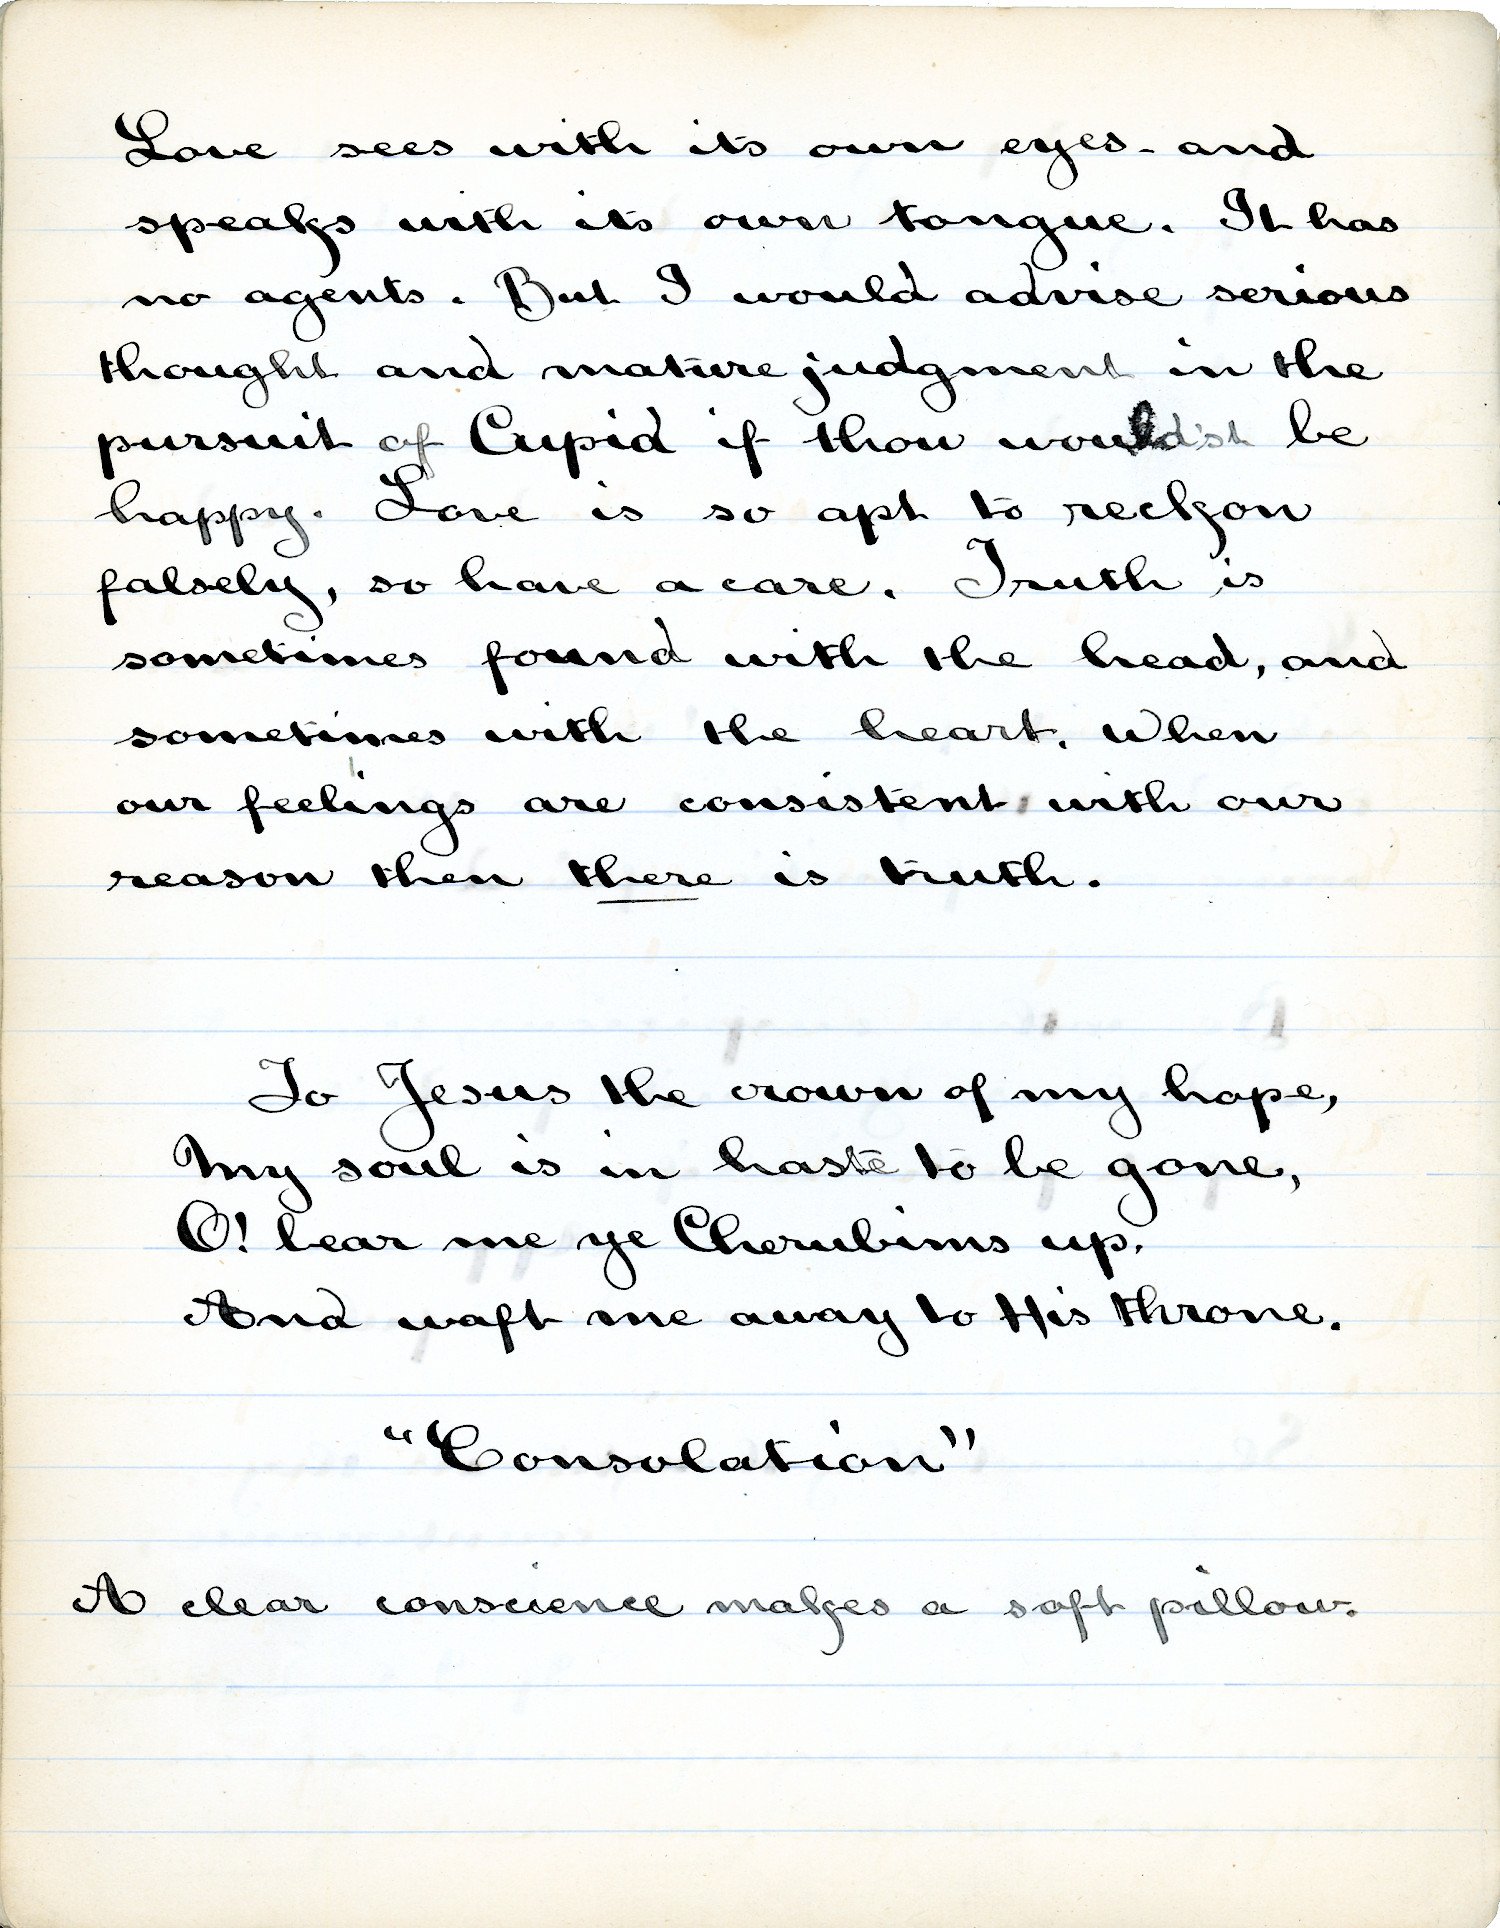 Love sees with its own eyes - and
speaks with its own tongue. It has
no agents. But I would advise serious
thought and mature judgment in the
pursuit of Cupid if thou would'st be
happy. Love is so apt to reckon
falsely, so have a care. Truth is
sometimes found with the head, and
sometimes with the heart. When
our feelings are consistent, with our
reason then there is truth.
To Jesus the crown of my hope,
My soul is in haste to be gone,
O! bear me ye Cherubims up.
And waft me away to His throne.
"Consolation"
A clear conscience makes a soft pillow.